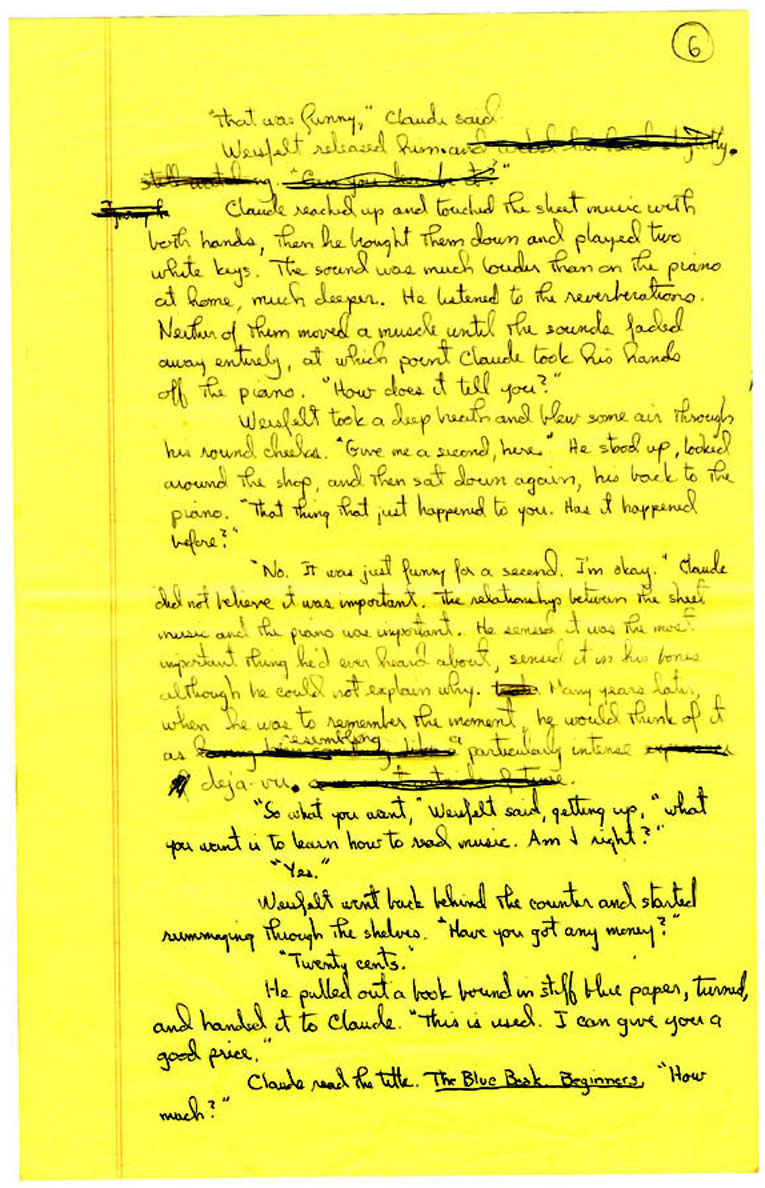 6
"That was funny," Claude said.
Weisfelt released him. and cocked his head slightly.
still watching. "Can you describe it?"
Claude reached up and touched the sheet music with
both hands, then he bought them down and played two
white keys. The sound was much louder than on the piano
at home, much deeper. He listened to the reverberations.
Neither of them moved a muscle until the sounds faded
away entirely, at which point Claude took his hands
off the piano. "How does it tell you?"
Weisfelt took a deep breath and blew some air through
his round cheeks. "Give me a second, here." He stood up, looked
around the shop, and then sat down again, his back to the
piano. "That thing that just happened to you. Has it happened
before?"
"No. It was just funny for a second. I'm okay." Claude
did not believe it was important. The relationship between the sheet
music and the piano was important. He sensed it was the most
important thing he'd ever heard about, sensed it in his bones
although he could not explain why. Many years later,
when he was to remember the moment, he would think of it
resembling
as a particularly intense
deja-vu.
"So what you want," Weisfelt said, getting up, "what
you want is to learn how to read music. Am I right?"
"Yes."
Weisfelt went back behind the counter and started
rummaging through the shelves. "Have you got any money?"
"Twenty cents."
He pulled out a book bound in stiff blue paper, turned,
and handed it to Claude. "This is used. I can give you a
good price."
Claude read the title. The Blue Book. Beginners. "How
much?"